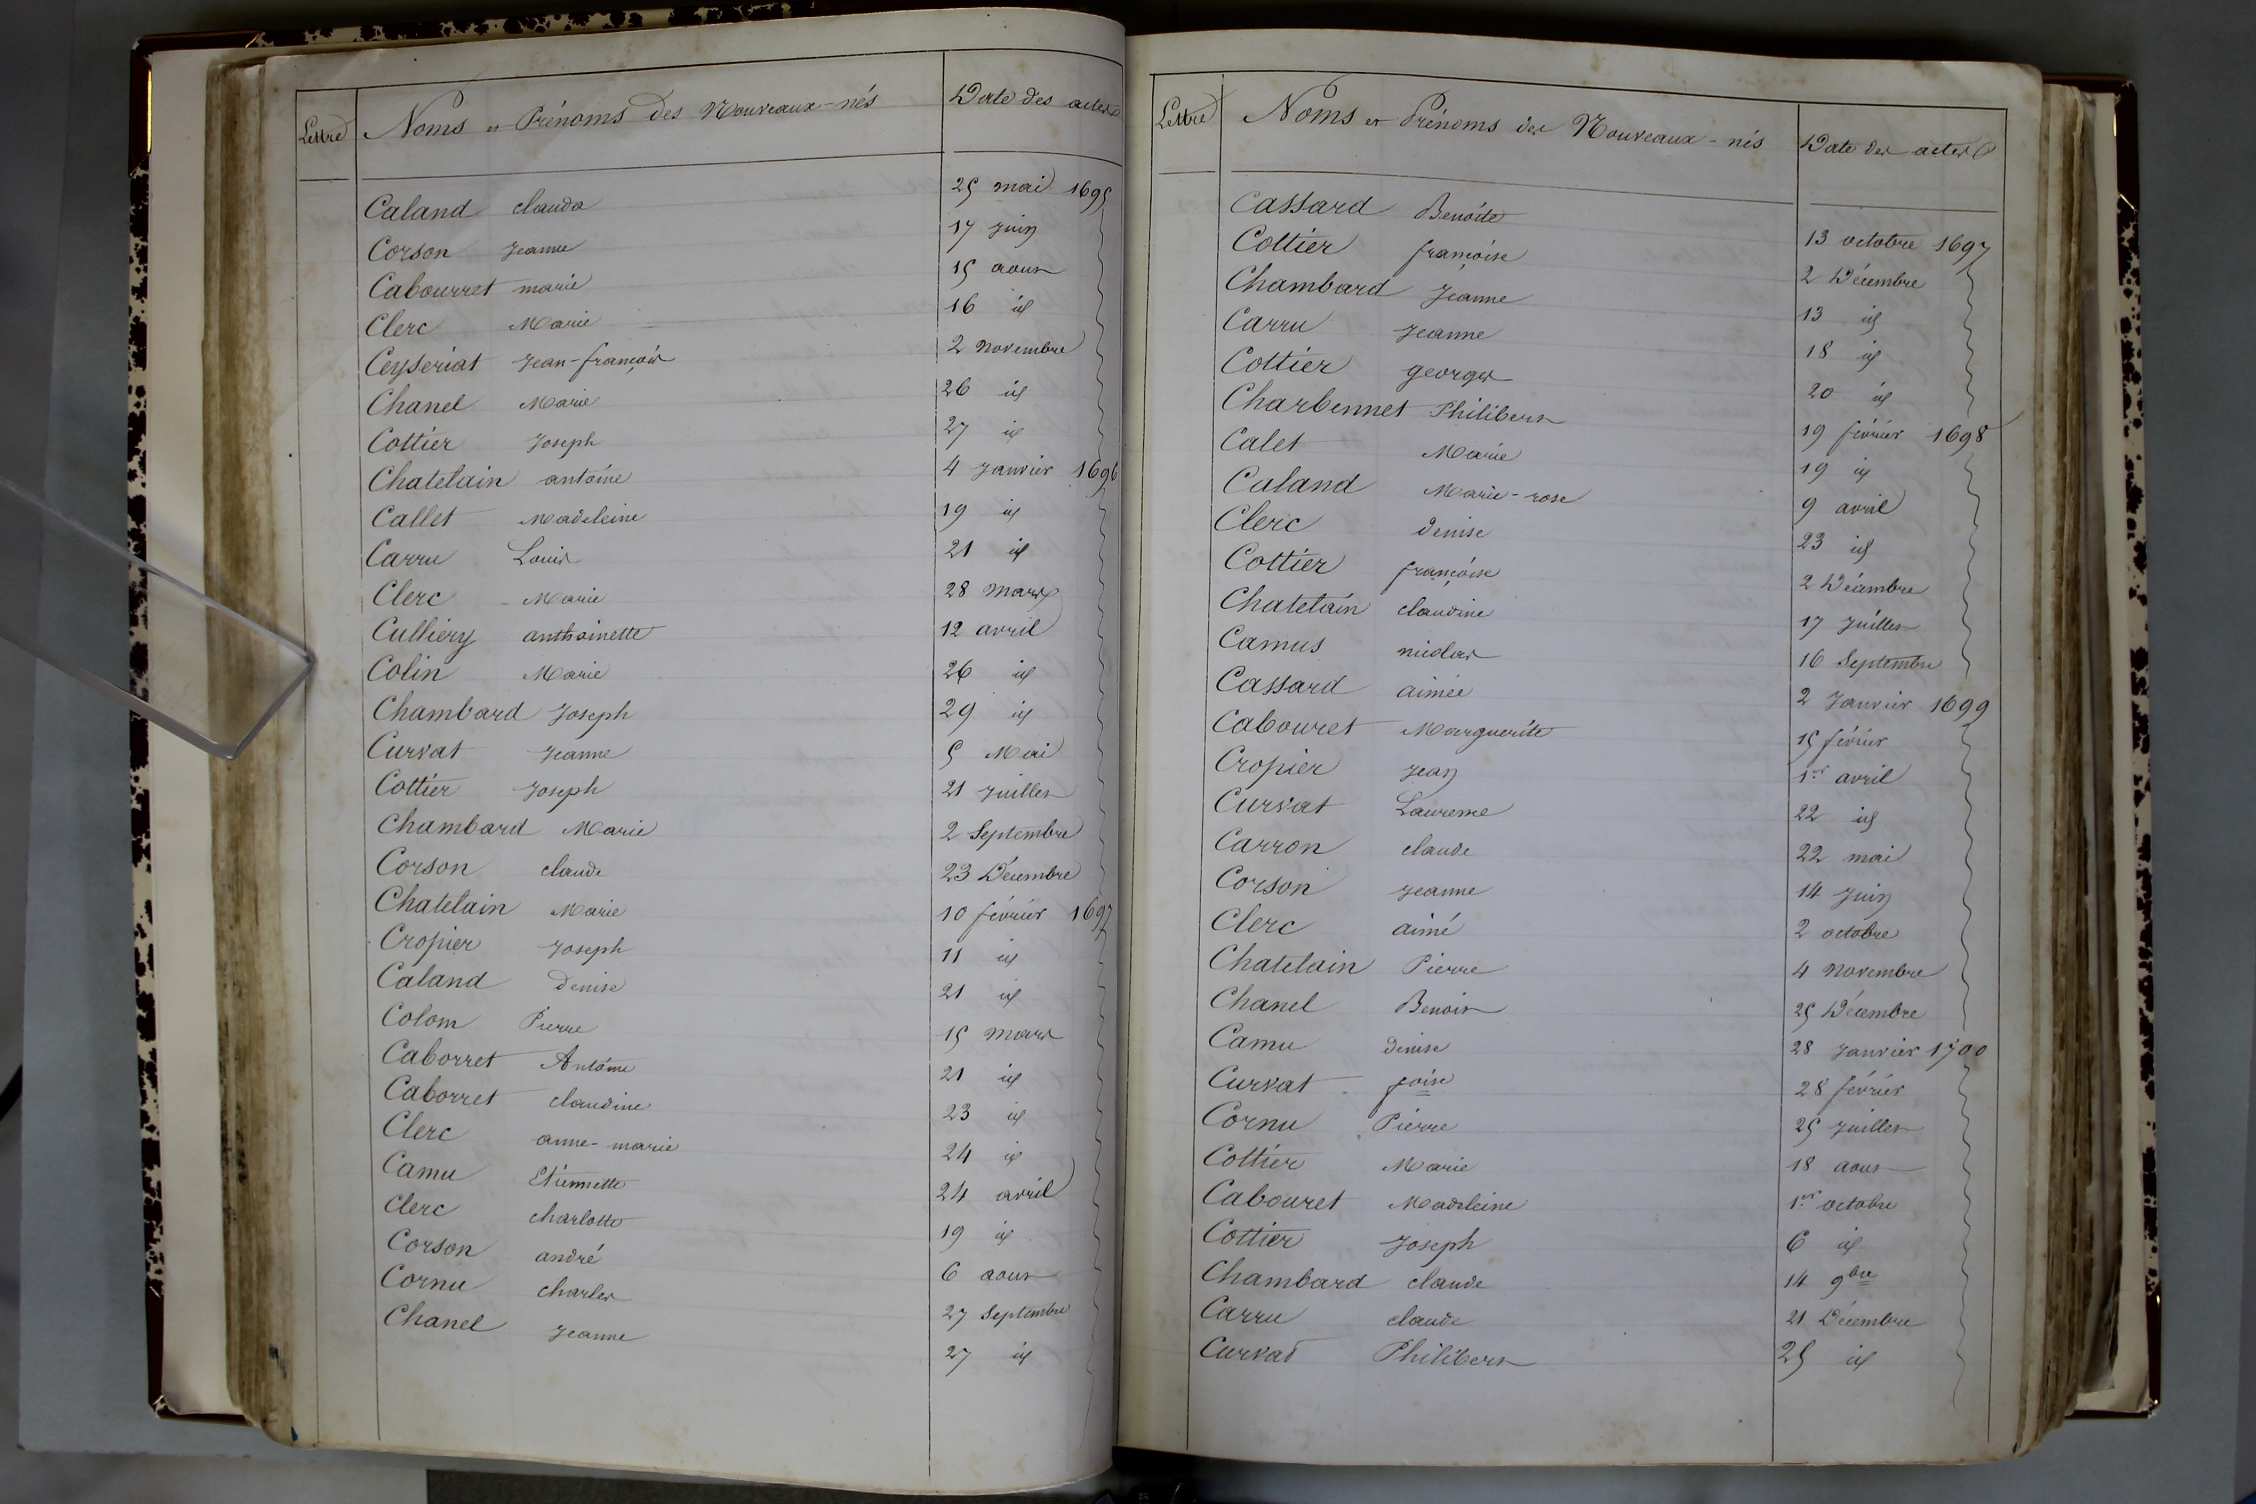 Lettre Noms et Prénoms des Nouveaux-nés Date des actes
Caland claude 25 mai 1695
Corson Jeanne 17 Juin
Cabourret marie 15 aout
Clerc Marie 16 id
Ceyseriat Jean-françois 2 Novembre
Chanel Marie 26 id
Cottier Joseph 27 id
Chatelain antoine 4 Janvier 1696
Callet Madeleine 19 id
Carru Louis 21 id
Clerc Marie 28 Mars
Culliery anthoinette 12 avril
Colin Marie 26 id
Chambard Joseph 29 id
Curvat Jeanne 5 Mai
Cottier Joseph 21 Juillet
Chambard Marie 2 Septembre
Corson claude 23 Décembre
Chatelain Marie 10 février 1697
Cropier Joseph 11 id
Caland Denise 21 id
Colom Pierre 15 Mars
Caborret Antoine 21 id
Caborret claudine 23 id
Clerc anne-marie 24 id
Camu Etiennette 24 avril
Clerc charlotte 19 id
Corson andré 6 aout
Cornu charles 27 Septembre
Chanel Jeanne 27 id
Lettre Noms et Prénoms des Nouveaux-nés Date des actes
Cassard Benoite 13 octobre 1697
Cottier françoise 2 Décembre
Chambard Jeanne 13 id
Carru Jeanne 18 id
Cottier georges 20 id
Charbennet Philibert 19 février 1698
Calet Marie 19 id
Caland Marie-rose 9 avril
Clerc denise 23 id
Cottier françoise 2 Décembre
Chatelain claudine 17 Juillet
Camus nicolas 16 Septembre
Cassard aimée 2 Janvier 1699
Cabouret Marguerite 15 février
Cropier Jean 1er avril
Curvat Laurence 22 id
Carron claude 22 mai
Corson Jeanne 14 Juin
Clerc aimé 2 octobre
Chatelain Pierre 4 Novembre
Chanel Benoit 25 Décembre
Camu Denise 28 Janvier 1700
Curvat foise 28 février
Cornu Pierre 25 Juillet
Cottier Marie 18 aout
Cabouret Madeleine 1er octobre
Cottier Joseph 6 id
Chambard claude 14 9bre
Carru claude 21 Décembre
Curvat Philibert 25 id